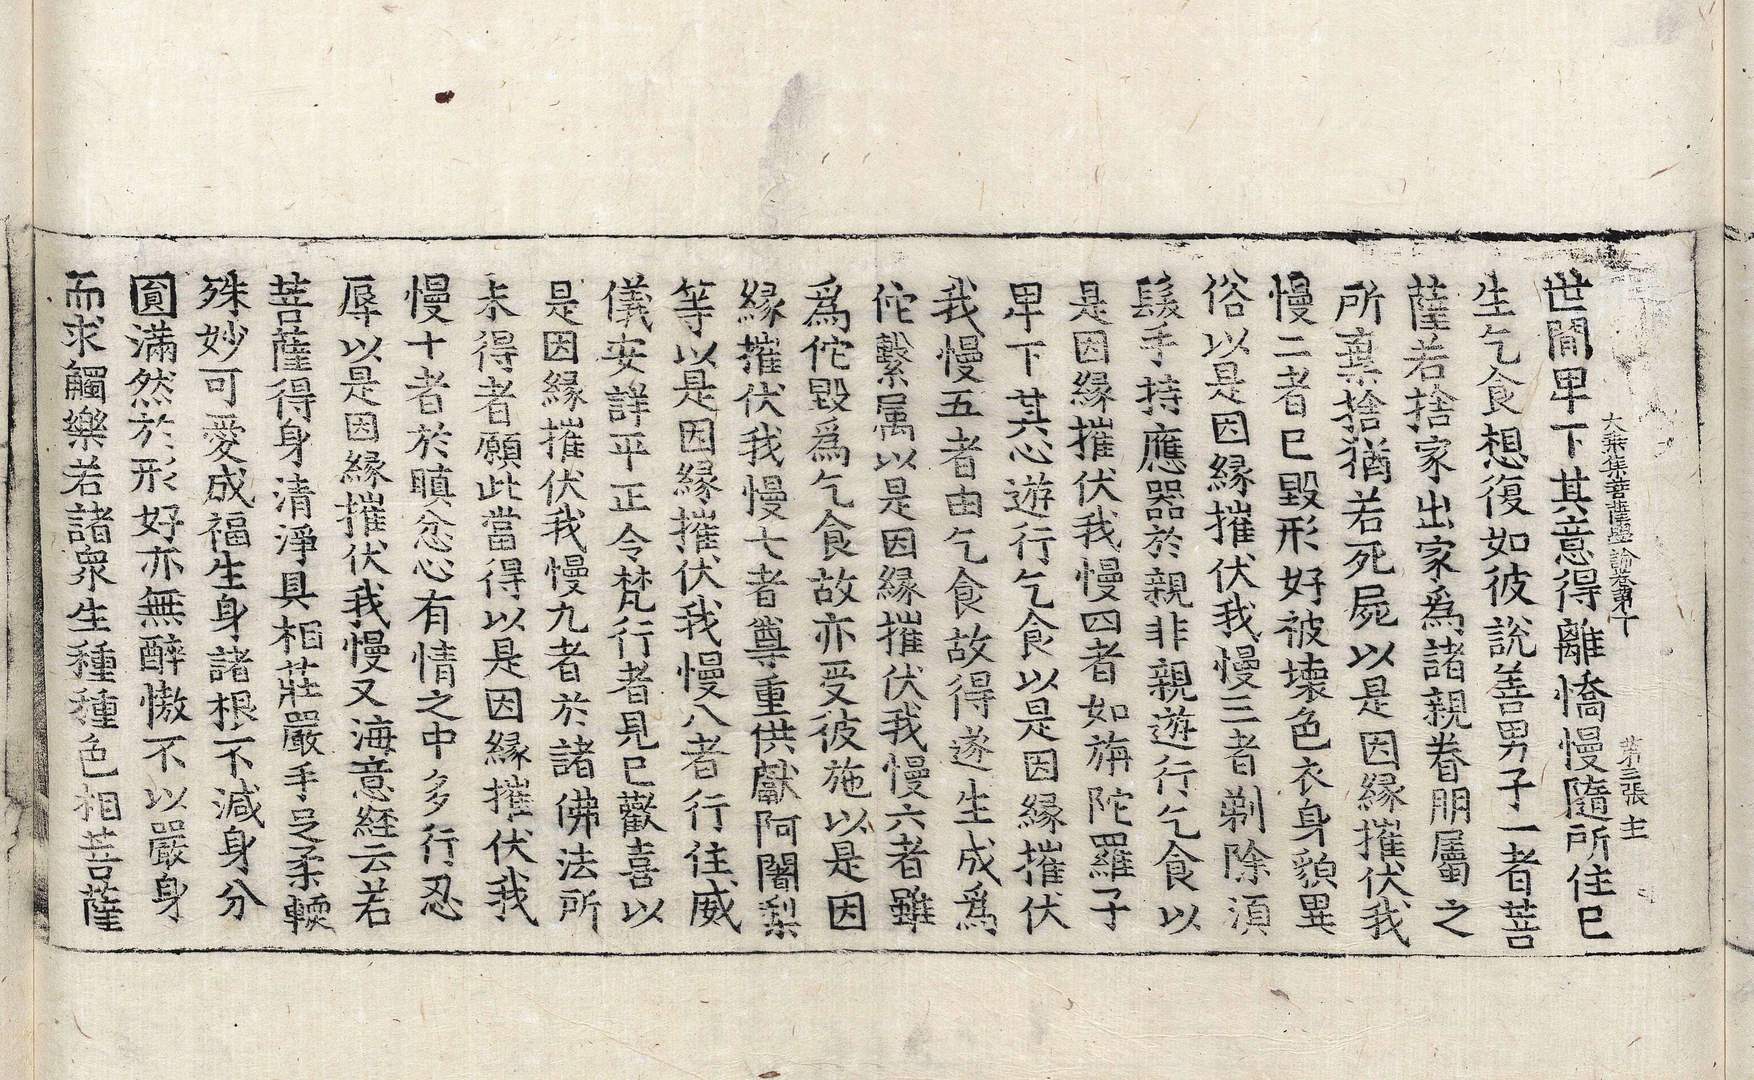 大乘集菩薩學論卷第十 第三張 主
世間卑下其意得離憍慢隨所住已
生乞食想復如彼說善男子一者菩
薩若捨家出家爲諸親眷朋屬之
所棄捨猶若死屍以是因緣摧伏我
慢二者已毀形好被壞色衣身貌異
俗以是因緣摧伏我慢三者剃除湏
髮手持應器於親非親遊行乞食以
是因緣摧伏我慢四者如旃陀羅子
卑下其心遊行乞食以是因緣摧伏
我慢五者由乞食故得遂生成爲
佗繫属以是因緣摧伏我慢六者雖
爲佗毀爲乞食故亦受彼施以是因
緣摧伏我慢七者尊重供獻阿闍梨
等以是因緣摧伏我慢八者行住威
儀安詳平正令梵行者見已歡喜以
是因緣摧伏我慢九者於諸佛法所
未得者願此當得以是因緣摧伏我
慢十者於瞋忿心有情之中多行忍
辱以是因緣摧伏我慢又海意経云若
菩薩得身清淨具相莊嚴手足柔輭
殊妙可愛成福生身諸根不減身分
圎滿然於形好亦無醉慠不以嚴身
而求觸樂若諸衆生種種色相菩薩